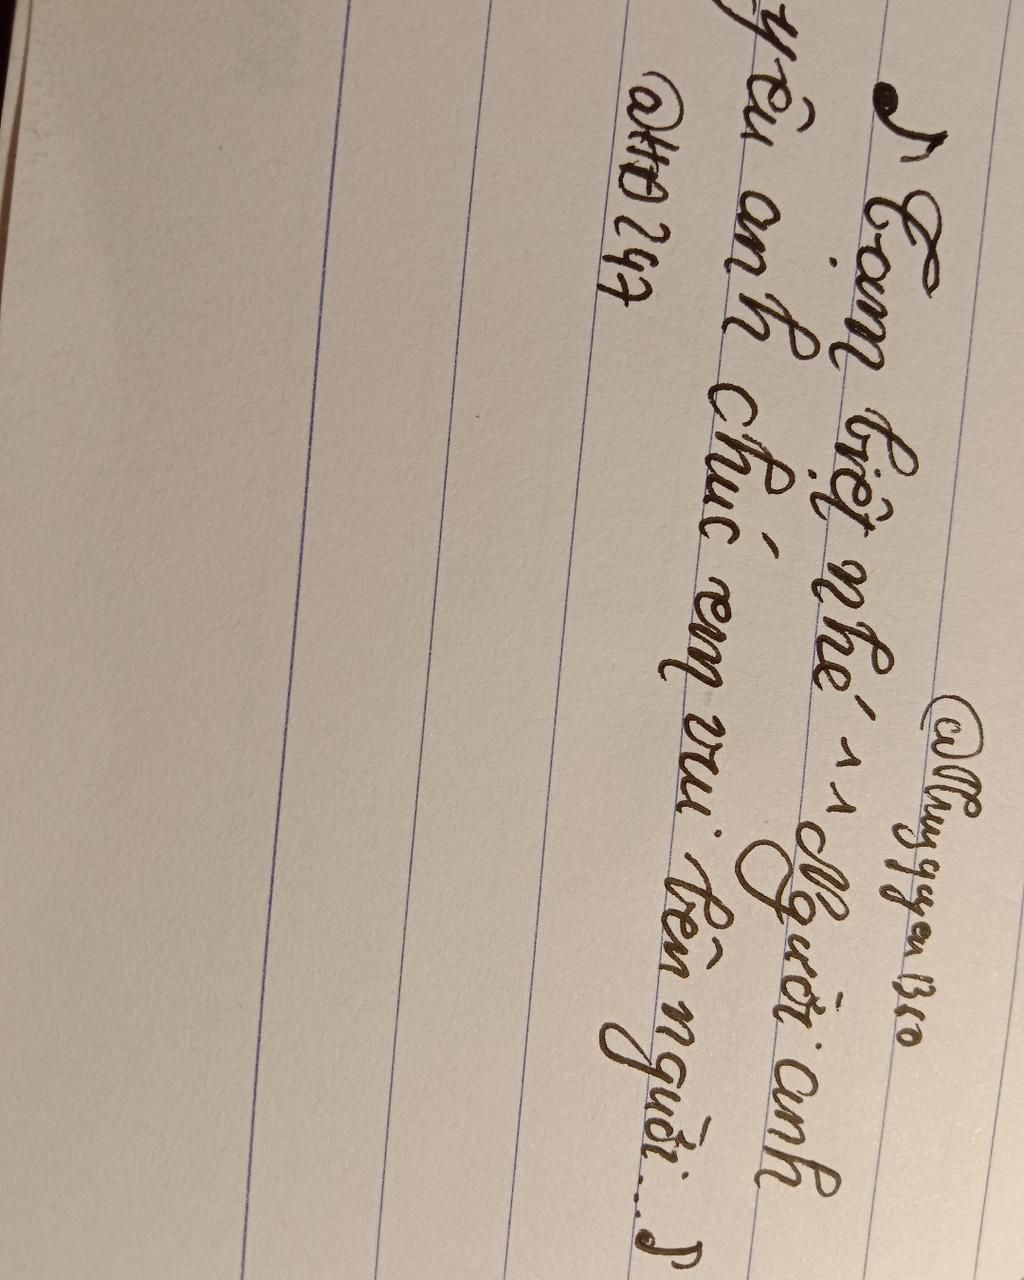 @Thuyquyen1310
♪ Tạm biệt nhé ,, Người anh
yêu anh chúc em vui bên người....♪
@HD247